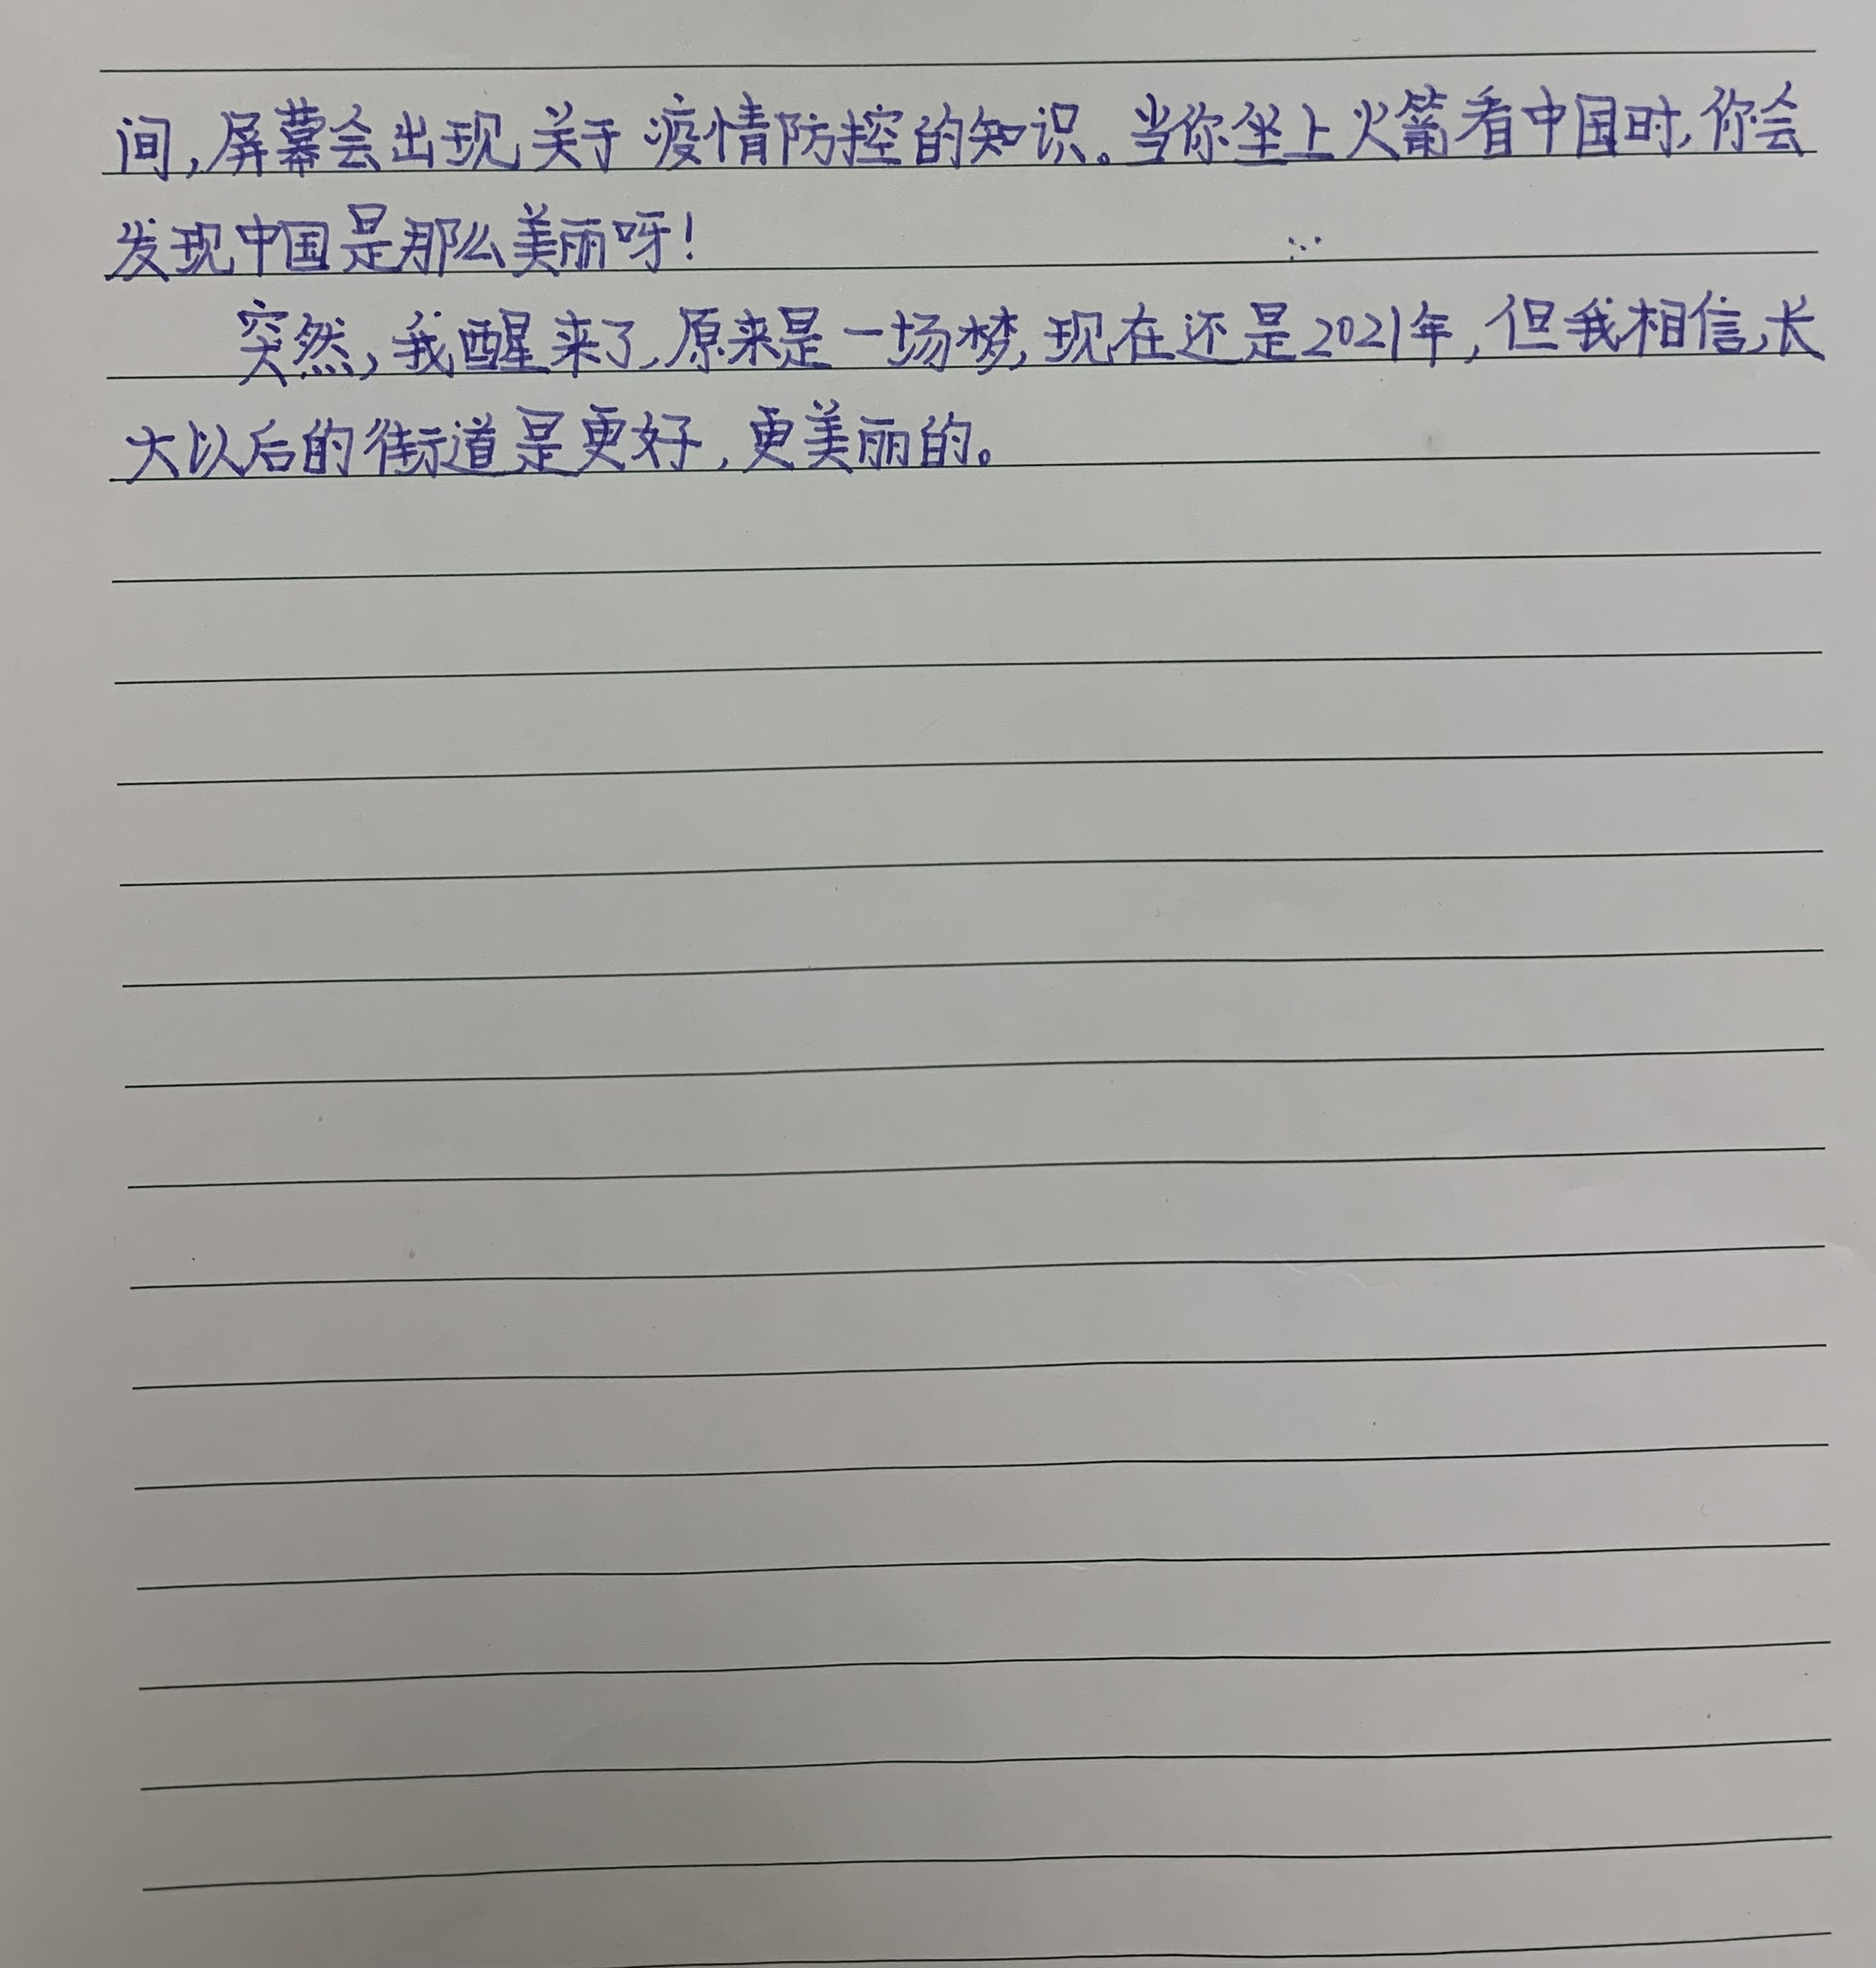 间，屏幕会出现关于疫情防控的知识。当你坐上火箭看中国时，你会
发现中国是那么美丽呀！
突然，我醒来了，原来是一场梦，现在还是2021年，但我相信，长
大以后的街道是更好，更美丽的。